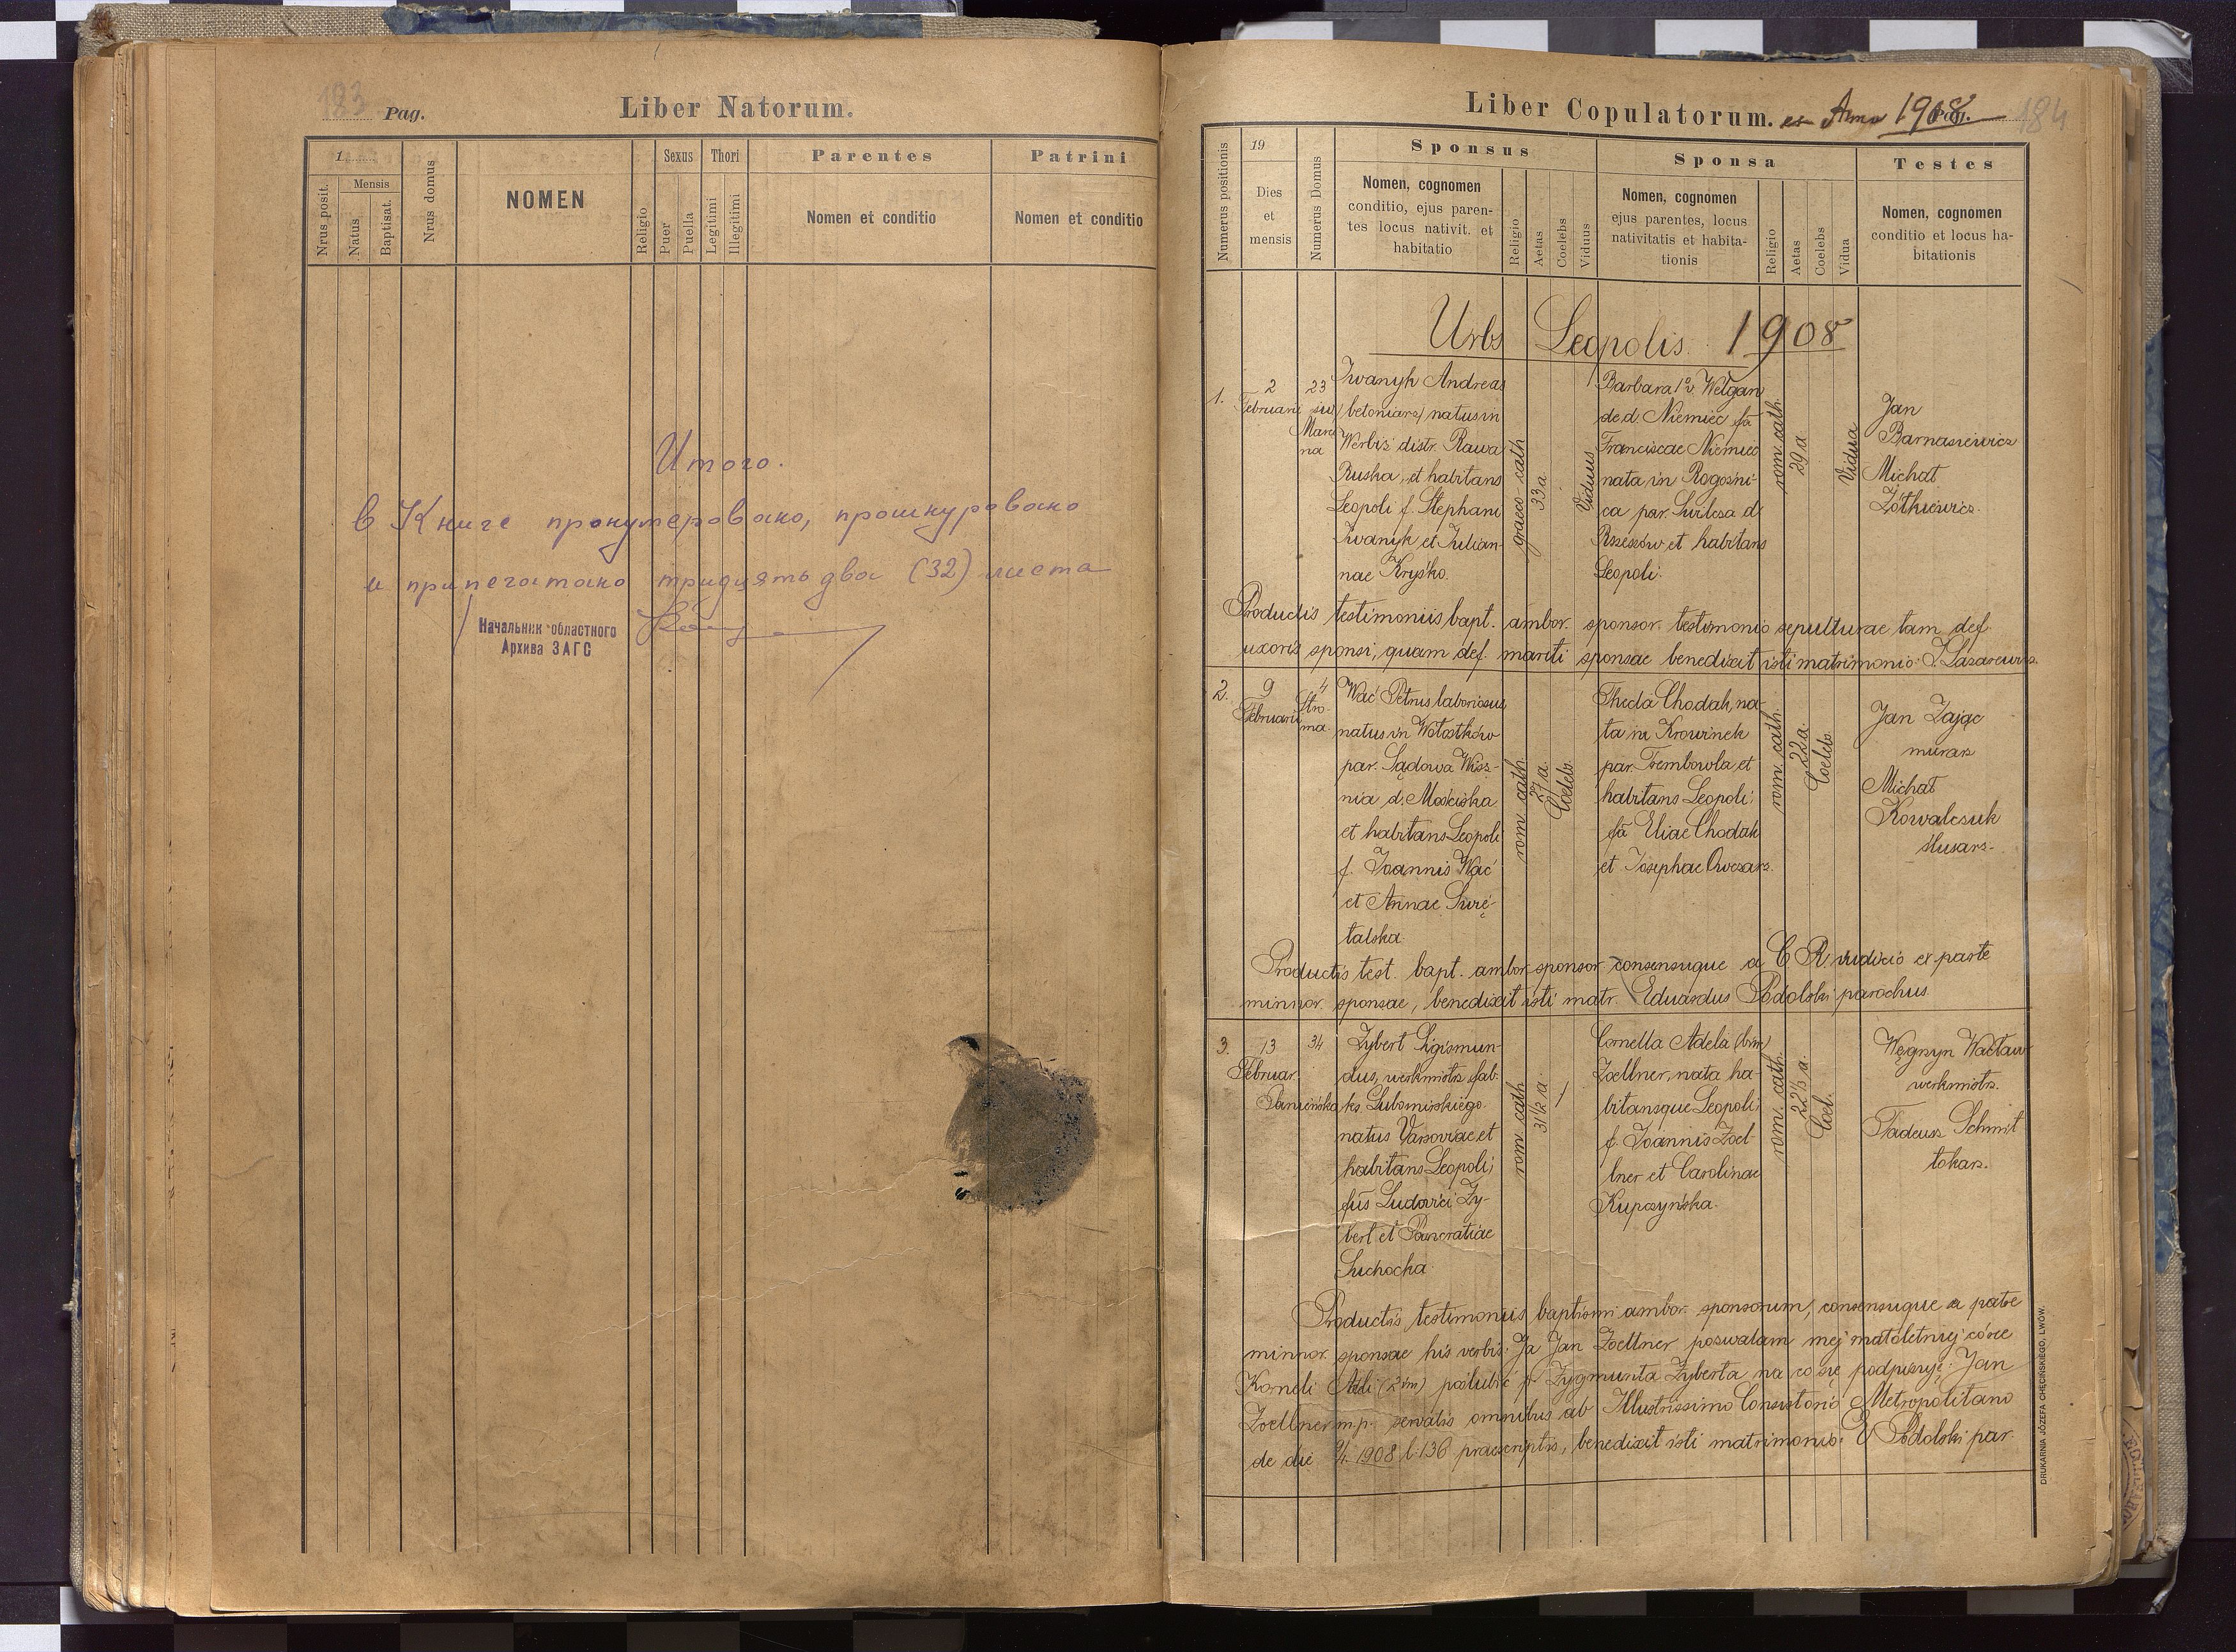 183 Pag.
Liber Natorum.
1
Nrus posit.
Mensis
Natus
Baptisat.
Nrus domus
NOMEN
Religio
Sexus
Puer
Puella
Thori
Legitimi
Illegitimi
Parentes
Nomen et conditio
Patrini
Nomen et conditio
Итого.
в Книге пронумеровано, прошнуровано
и припечатано тридцять два (32) листа
Начальник областного
Архива ЗАГС
Liber Copulatorum. ex Anno 1908 Pag. 184
Numerus positionis
19
Dies
et
mensis
Numerus Domus
Sponsus
Nomen, cognomen
conditio, ejus paren-
tes locus nativit. et
habitatio
Religio
Aetas
Coelebs
Viduus
Sponsa
Nomen, cognomen
ejus parentes, locus
nativitatis et habita-
tionis
Religio
Aetas
Coelebs
Vidua
Testes
Nomen, cognomen
conditio et locus ha-
bitationis
Urbs Leopolis. 1908
1.
2
Februarii
23
św
Marci
na
Iwanyk Andreas
(betoniarz) natus in
Werbiż distr. Rawa
Ruska, et habitans
Leopoli f. Stephani
Iwanyk et Julian-
nae Kryśko.
graeco cath
33 a
Viduus
Barbara 1º v. Welgan
de d. Niemiec fa
Franciscae Niemiec
nata in Rogoźni-
ca par. Świlcza d
Rzeszów et habitans
Leopoli.
rom. cath.
29 a
Vidua
Jan
Barnasiewicz
Michał
Żółkiewicz.
Productis testimoniis bapt. ambor. sponsor. testimonio sepulturae tam def.
uxoris sponsi, quam def. mariti sponsae benedixit isti matrimonio. J. Lazarewicz.
2.
9
Februarii
4
Stro-
ma
Wać Petrus laboriosus
natus in Wołostków
par. Sądowa Wisz-
nia d. Mościska
et habitans Leopoli
f. Joannis Wać
et Annae Świę-
talska.
rom. cath.
27 a.
Coeleb.
Thecla Chodak, na-
ta in Krowinek
par. Trembowla, et
habitans Leopoli;
fa Eliae Chodak
et Josephae Owczarz.
rom. cath.
22 a.
Coeleb.
Jan Zając
murarz
Michał
Kowalczuk
ślusarz-
Productis test. bapt. ambor sponsor consensuque a C. R. iudicio ex parte
minnor. sponsae, benedixit isti matr. Eduardus Podolski parochus.
3.
13
Februar.
34
Janińska
Zybert Sigismun-
dus, werkmistrz fab.
ks. Lubomirskiego.
natus Varsoviae et
habitans Leopoli;
fus Ludovici Zy-
bert et Pancratiae
Suchocka.
rom. cath
31 1/2 a.
/
Cornella Adela (bim)
Zoellner, nata ha-
bitansque Leopoli;
f. Joannis Zoel-
lner et Carolinae
Kupczyńska.
rom. cath.
22 1/3 a.
Coel.
Węgrzyn Wacław
werkmistrz.
Tadeusz Schmit
tokarz.
Productis testimoniis baptismi ambor. sponsorum, consensuque a patre
minnor. sponsae his verbis: Ja Jan Zoellner pozwalam mej małoletniej córce
Korneli Adeli (2 im) poślubić p Zygmunta Zyberta na co się podpisuję: Jan
Zoellner m.p. servatis omnibus ab Illustrissimo Consistorio Metropolitano
de die 9/1. 1908 l. 136 praescriptis, benedixit isti matrimonio. E Podolski par.
DRUKARNIA JÓZEFA CHĘCIŃSKIEGO, LWÓW.